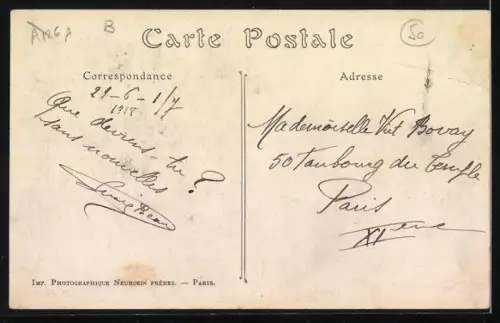 ANGA
B
50
Carte Postale
Correspondance
Adresse
29-6-17
1918
Que deviens-tu ?
sans nouvelles
Mademoiselle Bovay
50 Faubourg du Temple
Paris
XIème
IMP. PHOTOGRAPHIQUE NEURDEIN FRÈRES. — PARIS.